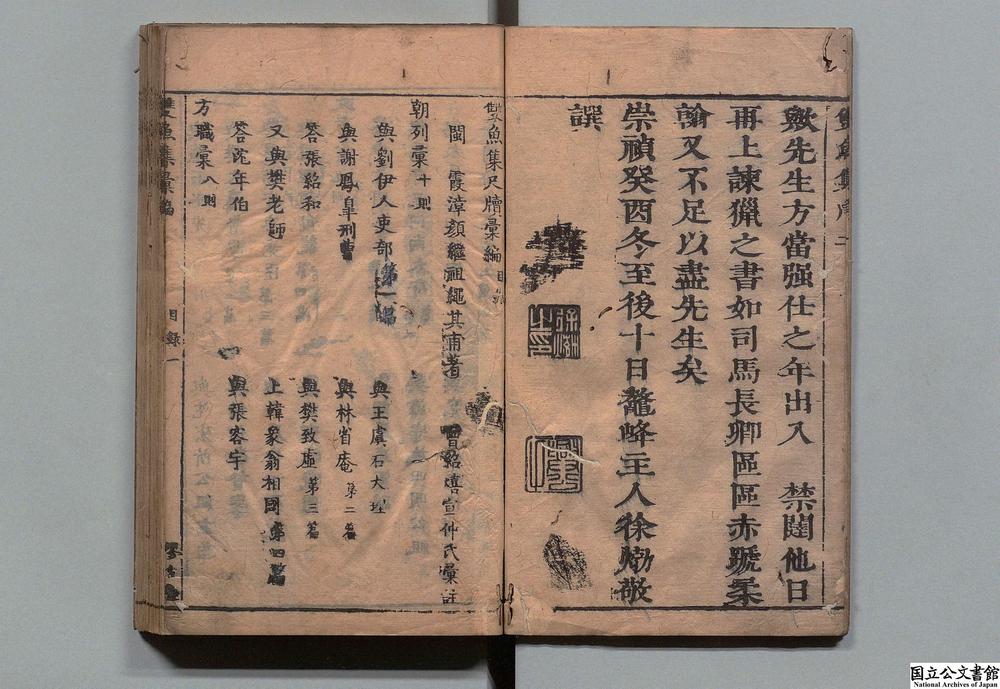 歟先生方當强仕之年出入　禁闥他日
再上諫獵之書如司馬長卿區區赤蹏柔
翰又不足以盡先生矣
崇禎癸酉冬至後十日鼇峰主人徐𤊹敬
譔
雙魚集尺牘彙編目錄
閩　霞漳顏繼祖繩其甫著　曾紹禧宣仲氏彙註
朝列彙十則
與劉伊人吏部第一篇　與王虞石大埕
與謝鳳皐刑曹　與林省庵第二篇
答張紹和　與樊致虛第三篇
又與樊老師　上韓象翁相國第四篇
答沈年伯　與張客宇
方職彙八則
雙魚集彙編　目錄一
国立公文書館
National Archives of Japan